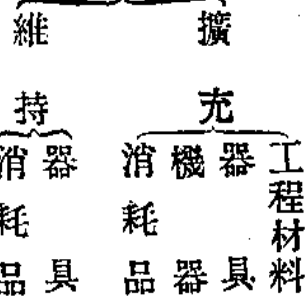 擴充
工程材料
器具
機器
消耗品
維持
器具
消耗品